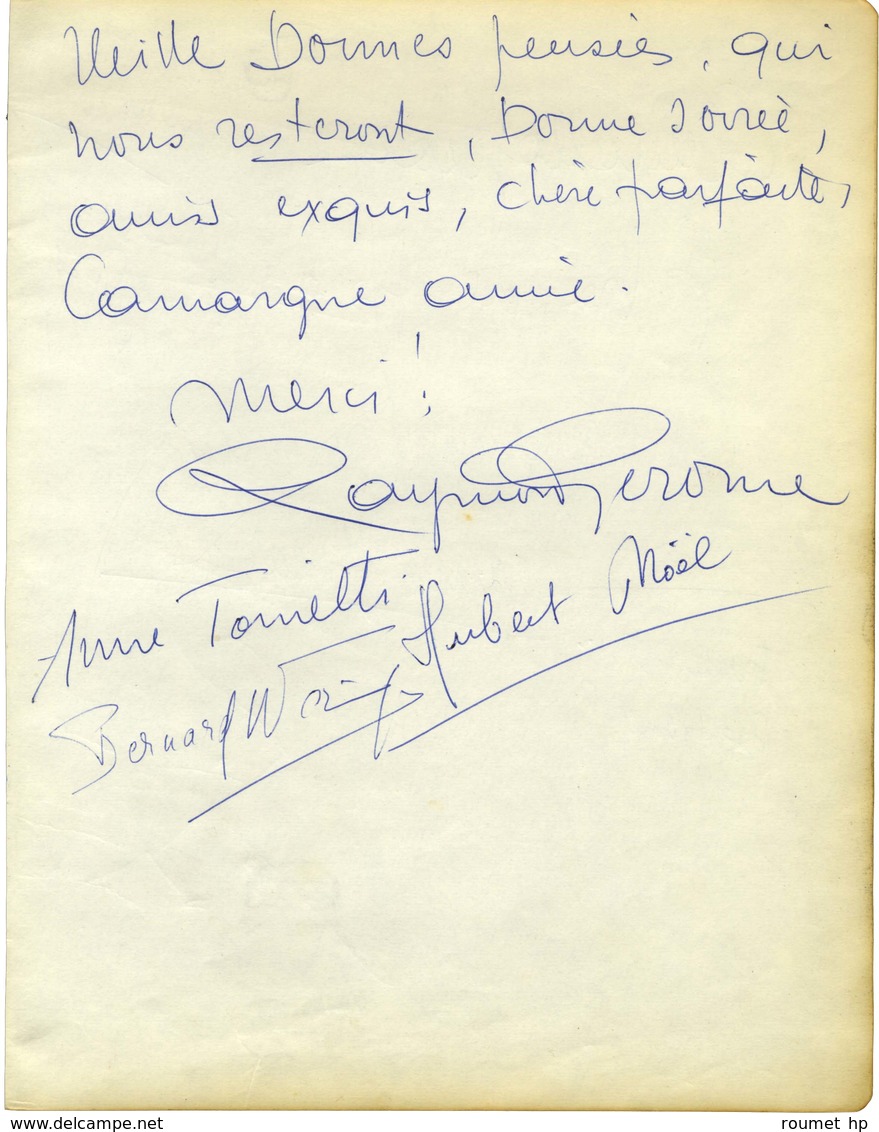 Mille Bonnes pensées, qui
nous resteront, Bonne soirée,
amis exquis, chère parfaite,
Camargue amie.
Merci!
Raymond Gerome
Anne Tonietti
Hubert Noël
Bernard
delcampe.net
roumet hp